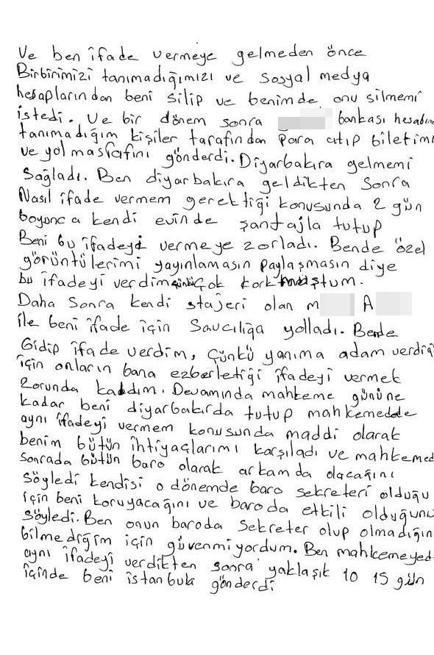 Ve ben ifade vermeye gelmeden önce
Birbirimizi tanımadığımızı ve sosyal medya
hesaplarından beni silip ve benimde onu silmemi
istedi. Ve bir dönem sonra bankası
tanımadığım kişiler tarafından para atıp biletimi
ve yol masrafını gönderdi. Diyarbakıra gelmemi
Sağladı. Ben diyarbakıra geldikten sonra
Nasıl ifade vermem gerektiği konusunda 2 gün
boyunca kendi evinde şantajla tutup
Beni bu ifadeyi vermeye zorladı. Bende özel
görüntülerimi yayınlamasın paylaşmasın diye
bu ifadeyi verdim çok korkmuştum.
Daha sonra kendi stajeri olan m A
ile beni ifade için Savcılığa yolladı. Bende
Gidip ifade verdim, çünkü yanıma adam verdiği
için onların bana ezberlettiği ifadeyi vermek
zorunda kaldım. Devamında mahkeme gününe
kadar beni diyarbakırda tutup mahkemede
aynı ifadeyi vermem konusunda maddi olarak
benim bütün ihtiyaçlarımı karşıladı ve mahkemed
sonrada bütün baro olarak arkamda olacağını
söyledi kendisi o dönemde baro sekreteri olduğu
için beni koruyacağını ve baroda etkili olduğunu
söyledi. Ben onun baroda sekreter olup olmadığın
bilmediğim için güvenmiyordum. Ben mahkemeyed
aynı ifadeyi verdikten sonra yaklaşık 10 15 gün
içinde beni istanbula gönderdi